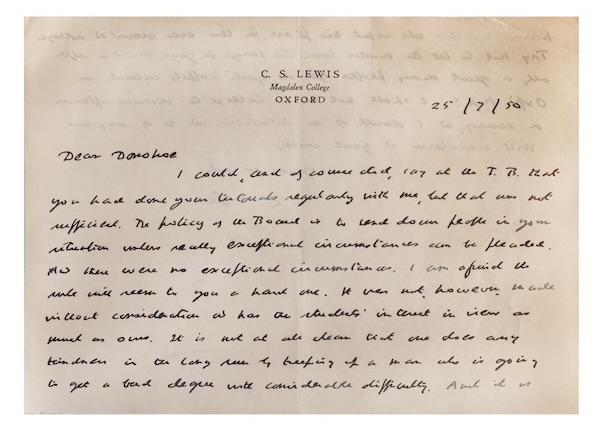 C. S. LEWIS
Magdalen College
OXFORD
25/7/50
Dear Donohoe
I could, and of course did, say at the T. B. that
you had done your tutorials regularly with me, but that was not
sufficient. The policy of the Board is to send down people in your
situation unless really exceptional circumstances can be pleaded.
And there were no exceptional circumstances. I am afraid the
rule will seem to you a hard one. It was not, however, made
without consideration & has the students' interest in view as
much as ours. It is not at all clear that one does any
kindness in the long run by keeping up a man who is going
to get a bad degree with considerable difficulty. And it is